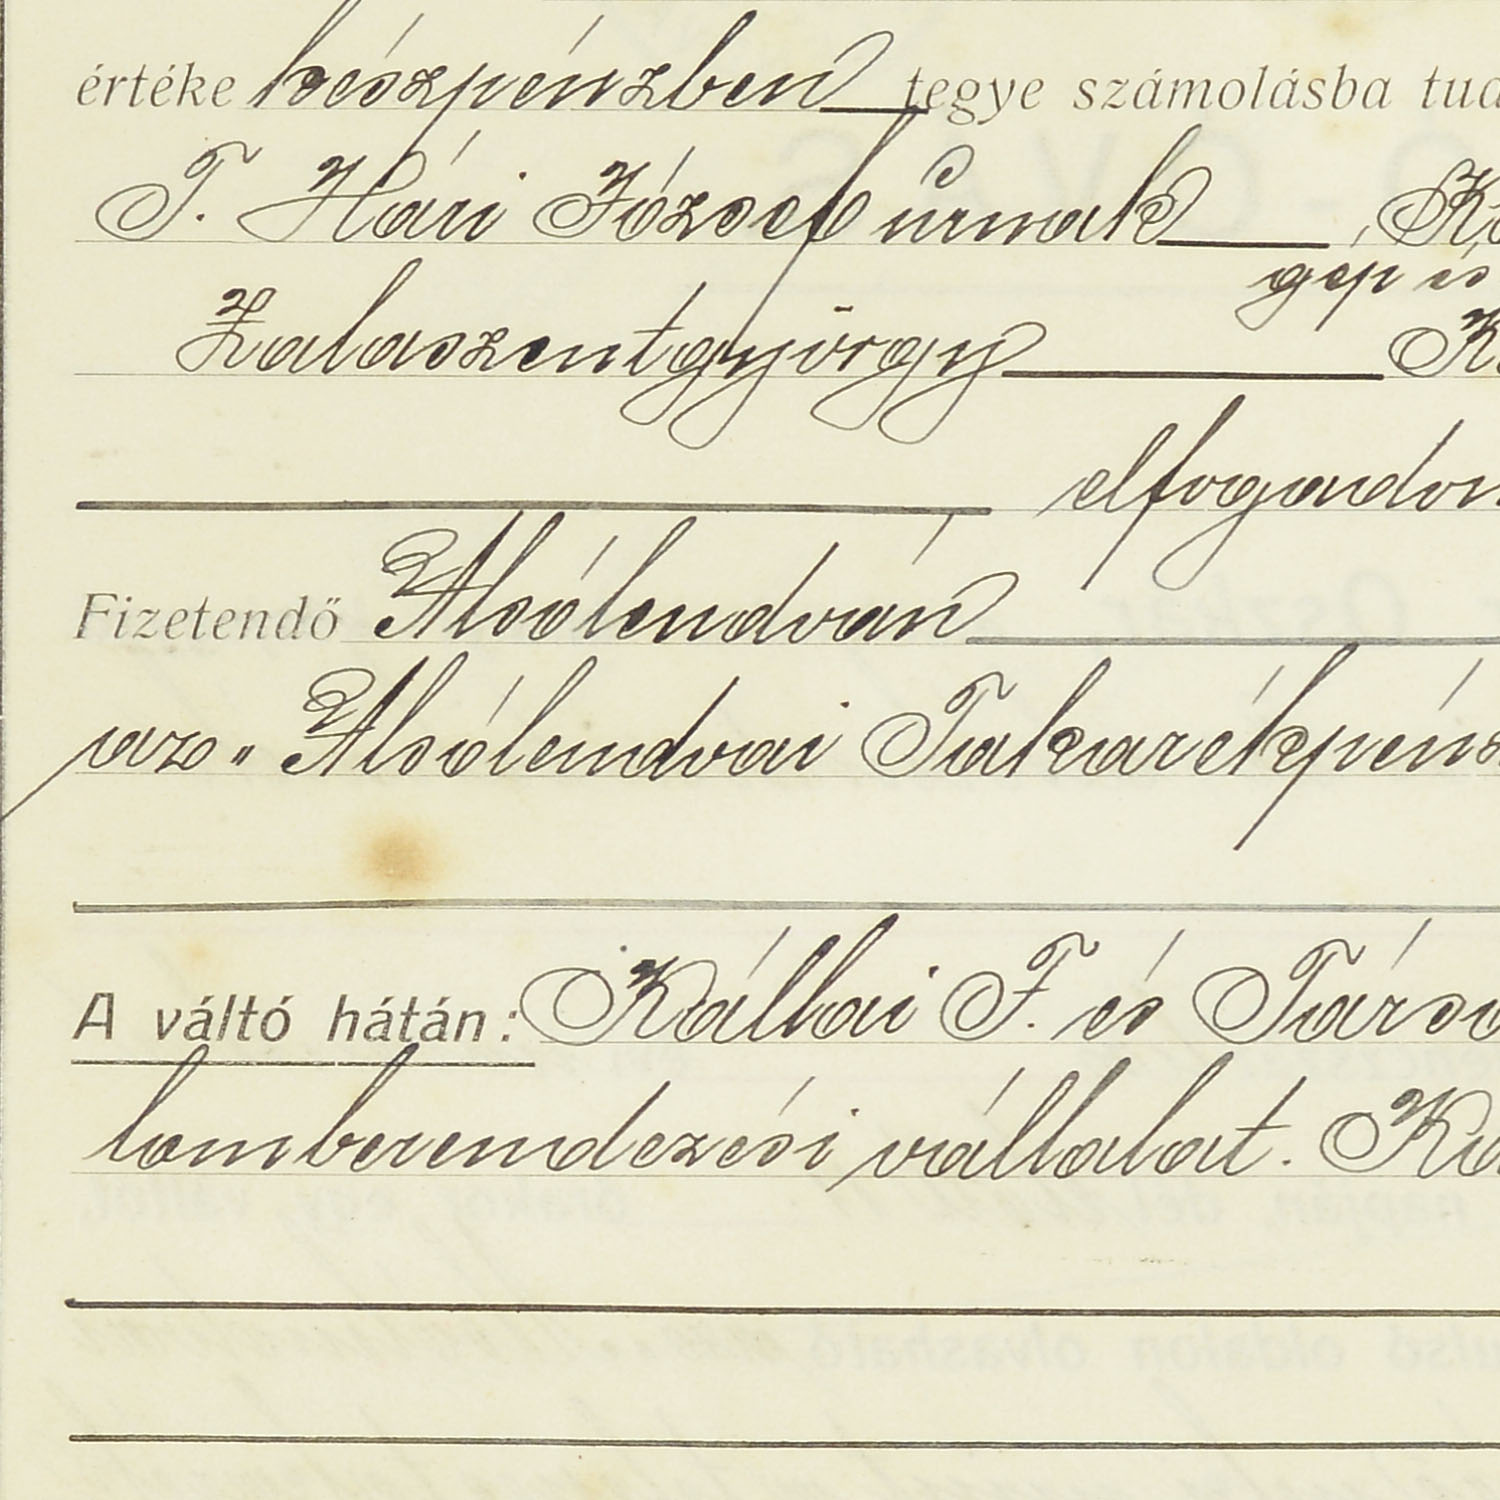 értéke készpénzben tegye számolásba tud
T. Hári József úrnak
gép és
Zalaszentgyörgy
elfogadom
Fizetendő Alsólendván
az „Alsólendvai Takarékpénz
A váltó hátán: Kállai F. és Társa
lomberendezési vállalat.